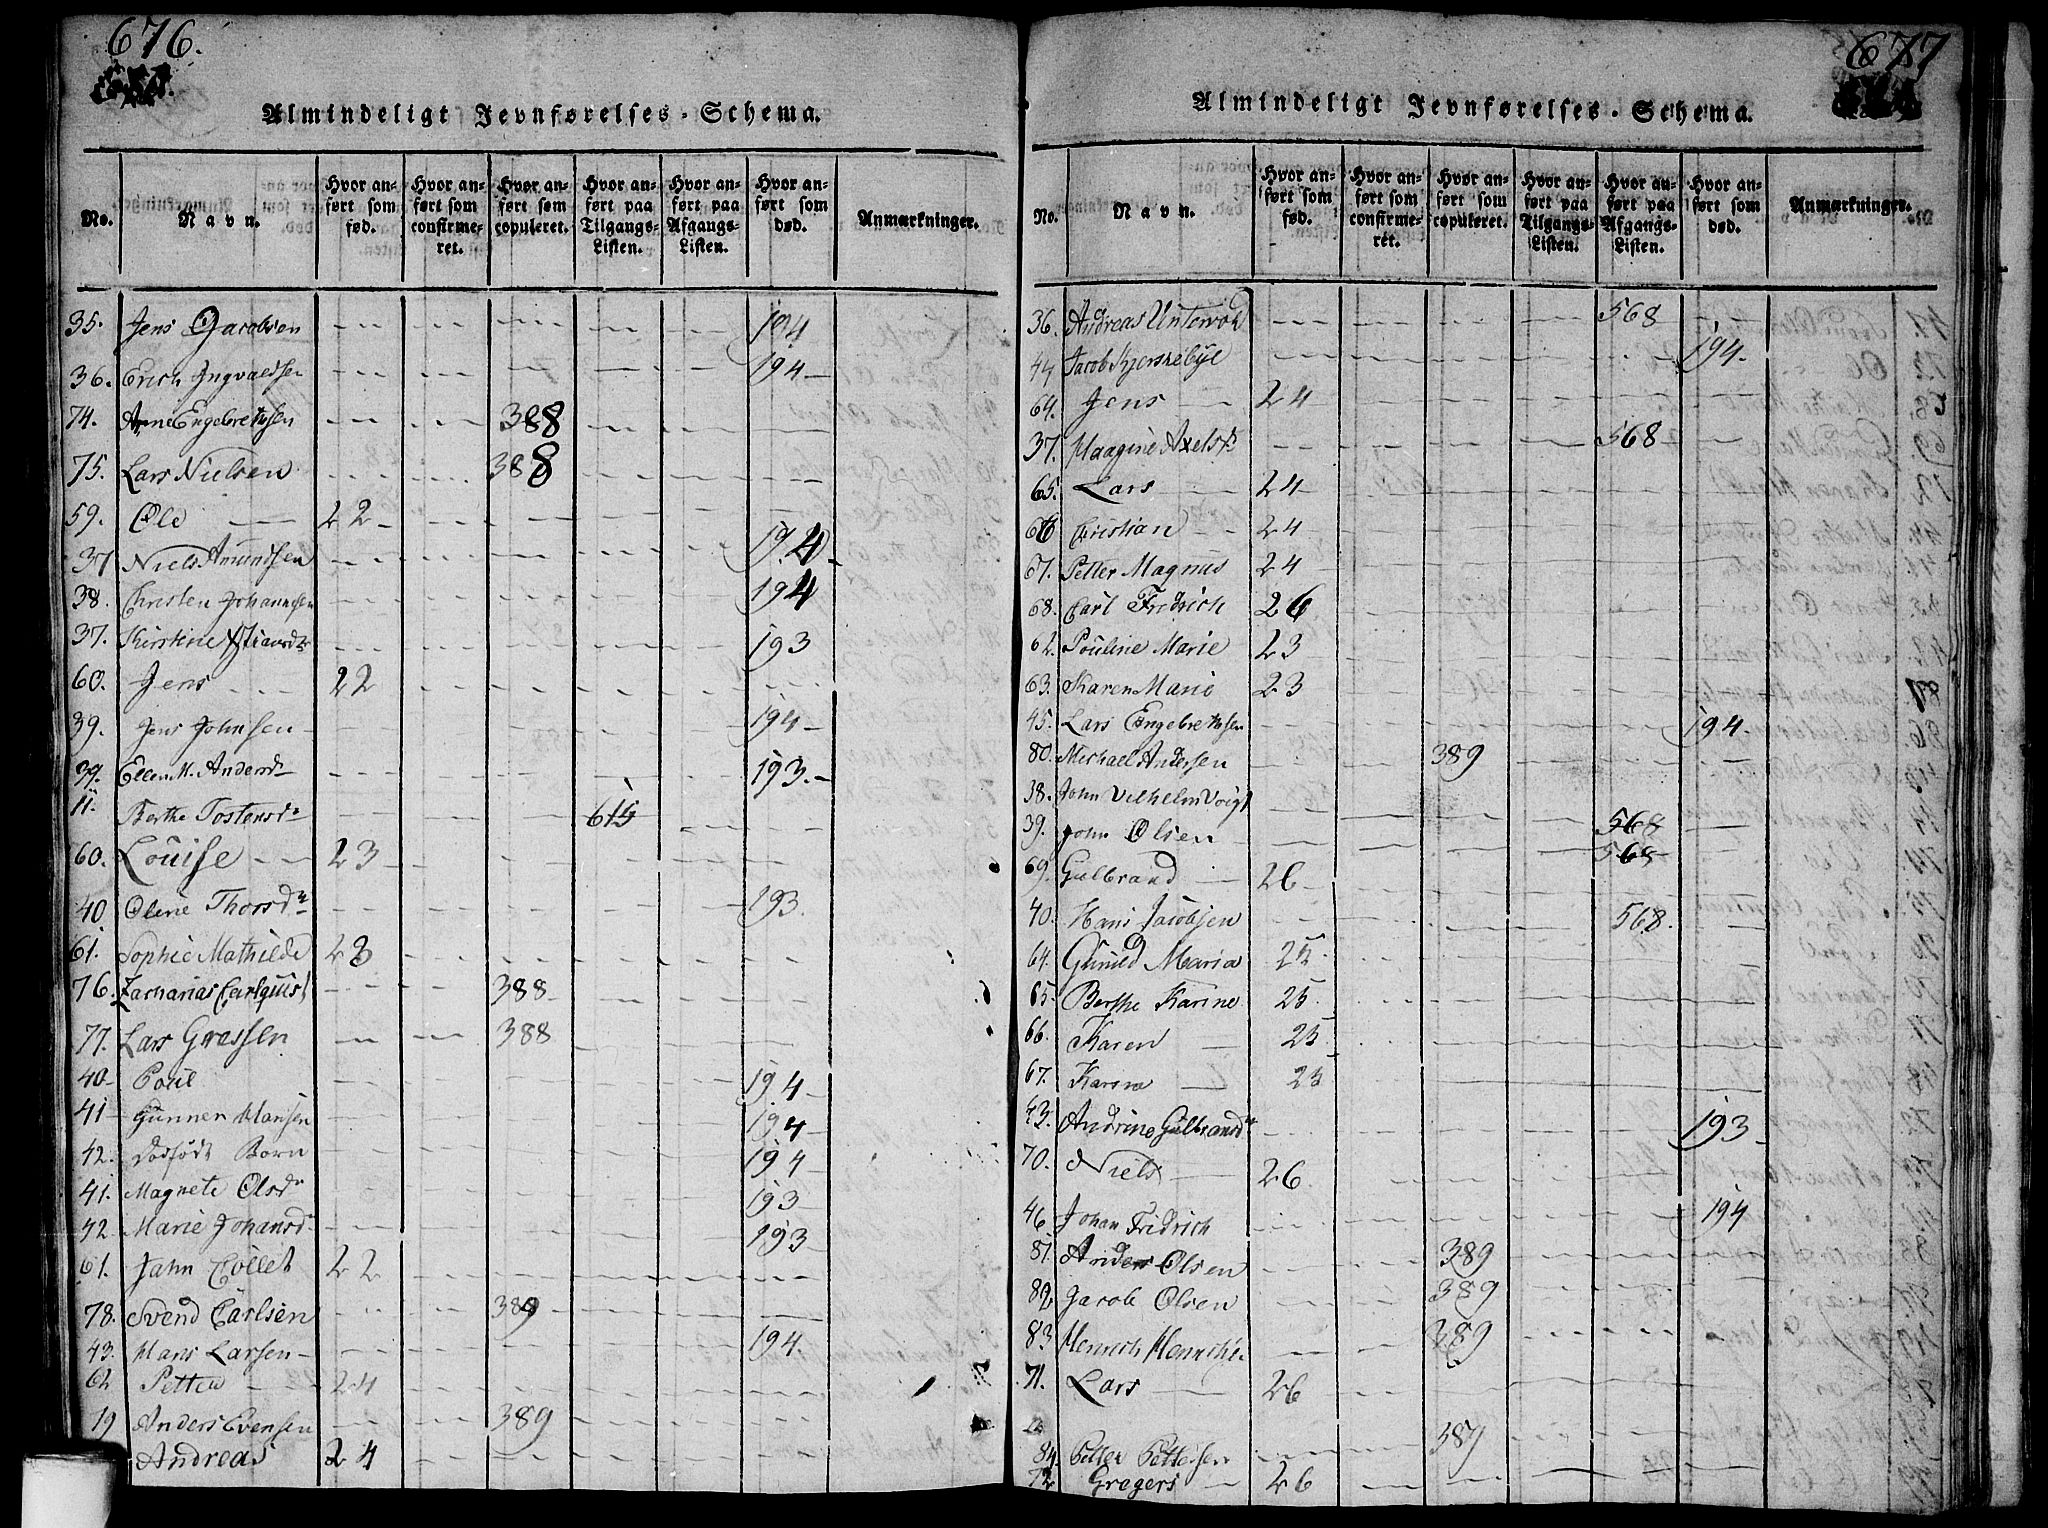 676.
Almindeligt Jevnførelses-Schema.
No.
Navn.
Hvor anført som fød.
Hvor anført som confirmeret.
Hvor anført som copuleret.
Hvor anført paa Tilgangs-Listen.
Hvor anført paa Afgangs-Listen.
Hvor anført som død.
Anmærkninger.
35. Jens Jacobsen 194
36. Erich Ingvaldsen 194
74. Arne Engebrethsen 388
75. Lars Nielsen 388
59. Ole 22
37 Niels Amundsen 194
38. Christen Johannesen 194
37. Kirstine 193
60. Jens 22
39. Jens Johnsen 194
39. Ellen M. Andersd 193
11. Berthe Tostensdr 615
60. Louise 23
40 Olene Thorsdr 193
61. Sophie Mathilde 23
76. Zacharias Carlquist 388
77. Lars Gressen 388
40 Poul 194
41 Gunner Hansen 194
42. dødfødt Barn 194
41. Magnete Olsdr 193
42. Marie Johansd 193
61. Jahn Collet 22
78. Svend Carlsen 389
43. Hans Larsen 194
62 Petter 24
19 Anders Evensen 389
Andreas 24
677
Almindeligt Jevnførelses-Schema.
No.
Navn.
Hvor anført som fød.
Hvor anført som confirmeret.
Hvor anført som copuleret.
Hvor anført paa Tilgangs-Listen.
Hvor anført paa Afgangs-Listen.
Hvor anført som død.
Anmærkninger.
36. Andreas 568
44 Jacob 194.
64. Jens 24
37. Maagine Axelsd 568
65. Lars 24
66 Christian 24
67. Petter Magnus 24
68. Carl Fredrich 26
62. Pouline Marie 23
63. Karen Marie 23
45. Lars Engebrethsen 194
80. Michael Andersen 389
38. John Vilhelm Voigt 568
39. John Olsen 568
69. Gulbrand 26
40. Hans Jacobsen 568
64. Gunild Maria 25
65. Berthe Karine 25
66. Karen 25
67. Karen 25
43. Andrine Gulbransdr 193
70. Niels 26
46 Johan Fredrich 194
81. Anders Olsen 389
82 Jacob Olsen 389
83. Henrich 389
71. Lars 26
84. Petter Pettersen 389
72 Gregers 26